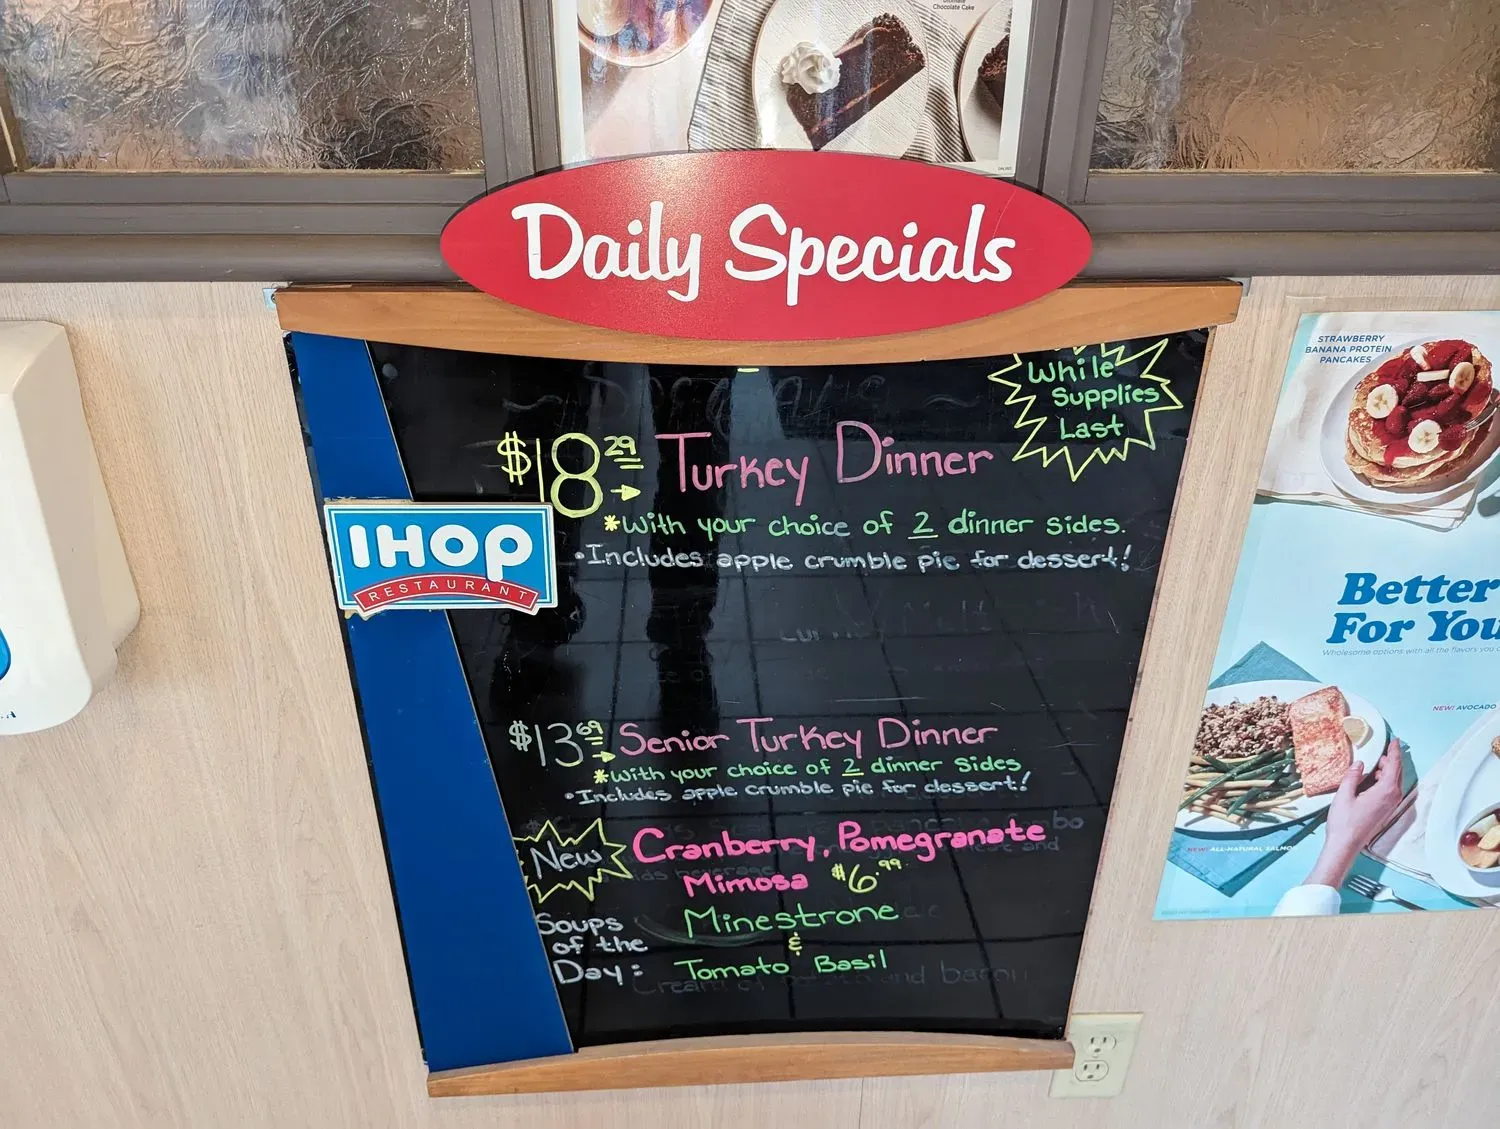 Ultimate
Chocolate Cake
Daily Specials
While
Supplies
Last
$18 29 Turkey Dinner
*With your choice of 2 dinner sides.
•Includes apple crumble pie for dessert!
IHOP
RESTAURANT
$13 69 Senior Turkey Dinner
*With your choice of 2 dinner sides
•Includes apple crumble pie for dessert!
New
Cranberry, Pomegranate
Mimosa $6.99
Soups
of the
Day:
Minestrone
&
Tomato Basil
Cream of
and bacon
STRAWBERRY
BANANA PROTEIN
PANCAKES
Better
For You
Wholesome options with all the flavors you
NEW! AVOCADO
NEW! ALL-NATURAL SALMON